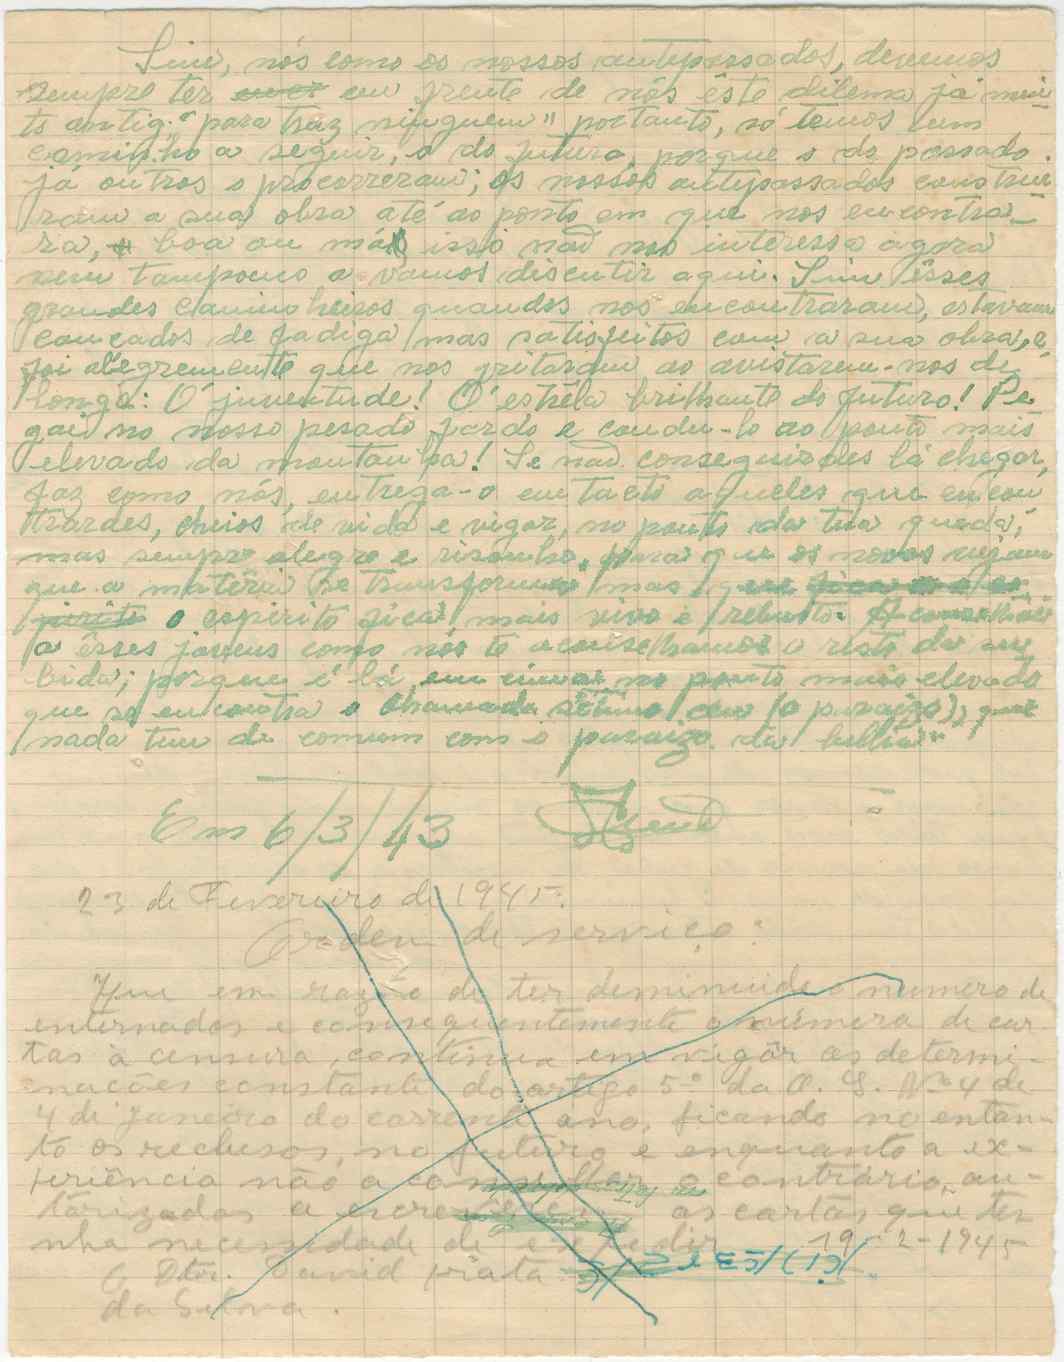 Sim, nós como os nossos antepassados, devemos
sempre ter em frente de nós êste dilema já mui
to antigo "para traz ninguem" portanto, só temos um
caminho a seguir, o do futuro, porque o do passado
já outros o procorreram; os nossos antepassados construi
ram a sua obra até ao ponto em que nos encontra-
ra, boa ou má isso não nos interessa agora
nem tampouco a vamos discutir aqui. Sim êsses
grandes caminheiros quandos nos encontraram, estavam
cançados de fadiga mas satisfeitos com a sua obra, e
foi alegremente que nos gritaram ao avistarem-nos de
longe: Ó juventude! Ó estrêla brilhante do futuro! Pe
gai no nosso pesado fardo e condu-lo ao ponto mais
elevado da montanha! Se não conseguirdes lá chegar,
faz como nós, entrega-o intacto aqueles que encon
trardes, cheios de vida e vigor, no ponto da tua queda;
mas sempre alegre e risonho, para que os novos vejam
que a matéria se transforma mas
o espirito fica mais vivo e rebusto.
a êsses jovens como nós te aconselhamos o resto da su
bida; porque é lá, em cima no ponto mais elevado
que se encontra o chamado sétimo ceu (o paraizo), que
nada tem de comum com o paraizo da biblia"
Em 6/3/43
23 de Fevereiro de 1945.
Ordem de serviço:
Que em razão de ter deminuido o numero de
internados e consequentemente o número de car
tas à censura, continua em vigôr as determi-
nações constante do artigo 5º da O. S. Nº 4 de
4 de Janeiro do corrente ano, ficando no entan-
to os reclusos, no futuro e enquanto a ex-
periência não a conselhar o contrário, au-
torizados a escreverem as cartas que te
nha necessidade de expedir 19-2-1945
O Dtor. David prata
da Silva.